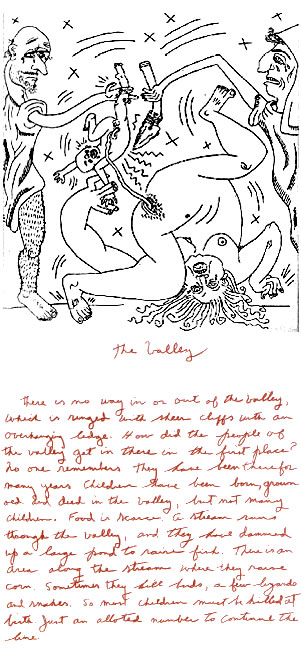 the Valley
There is no way in or out of the Valley,
which is ringed with sheer cliffs with an
overhanging ledge. How did the people of
the valley get in there in the first place?
No one remembers They have been there for
many years Children have been born, grown
old and died in the Valley, but not many
children. Food is scarce. A stream runs
through the valley, and they have dammed
up a large pond to raise fish. There is an
area along the stream where they raise
corn. Sometimes they kill birds, a few lizards
and snakes. So most children must be killed at
birth Just an allotted number to continue the
line.